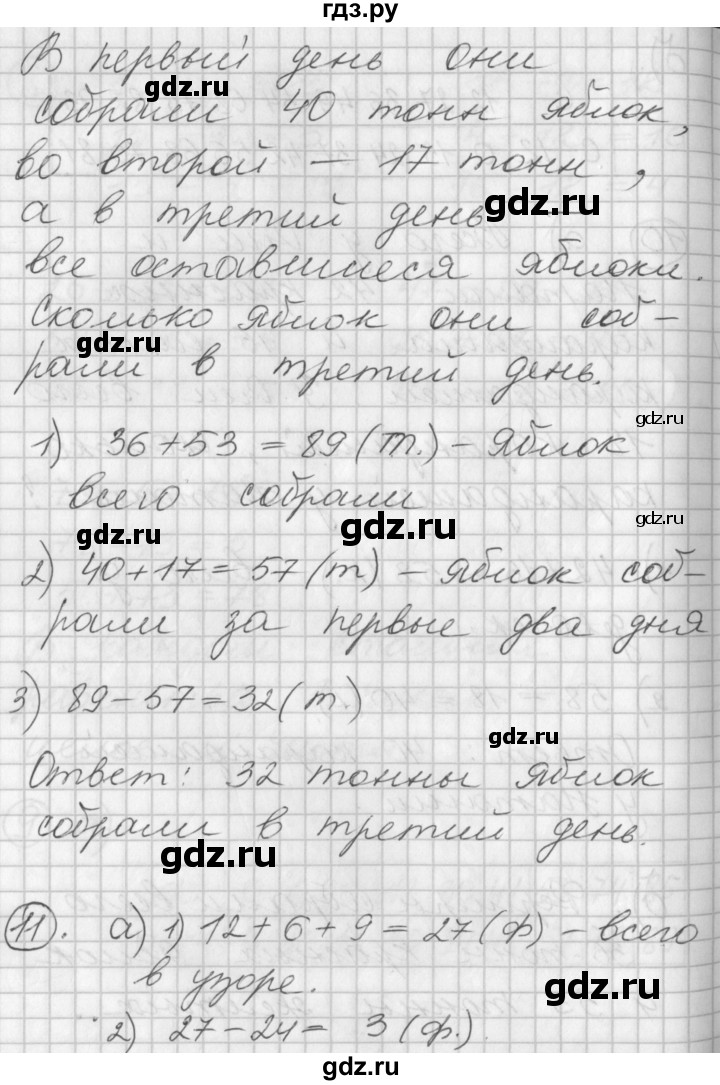 гдз.ру
В первый день они
gdz.ru
собрали 40 тонн яблок,
во второй – 17 тонн,
gdz.ru
а в третий день –
все оставшиеся яблоки.
Сколько яблок они соб-
gdz.ru
рали в третий день.
gdz.ru
1) 36 + 53 = 89 (т.) – яблок
всего собрали
gdz.ru
gdz.ru
gdz.ru
2) 40 + 17 = 57 (т) – яблок соб-
рали за первые два дня
3) 89 – 57 = 32 (т.)
gdz.ru
Ответ: 32 тонны яблок
собрали в третий день.
gdz.ru
11. а) 1) 12 + 6 + 9 = 27 (ф) – всего
в узоре.
gdz.ru
gdz.ru
2) 27 – 24 = 3 (ф.)
gdz.ru